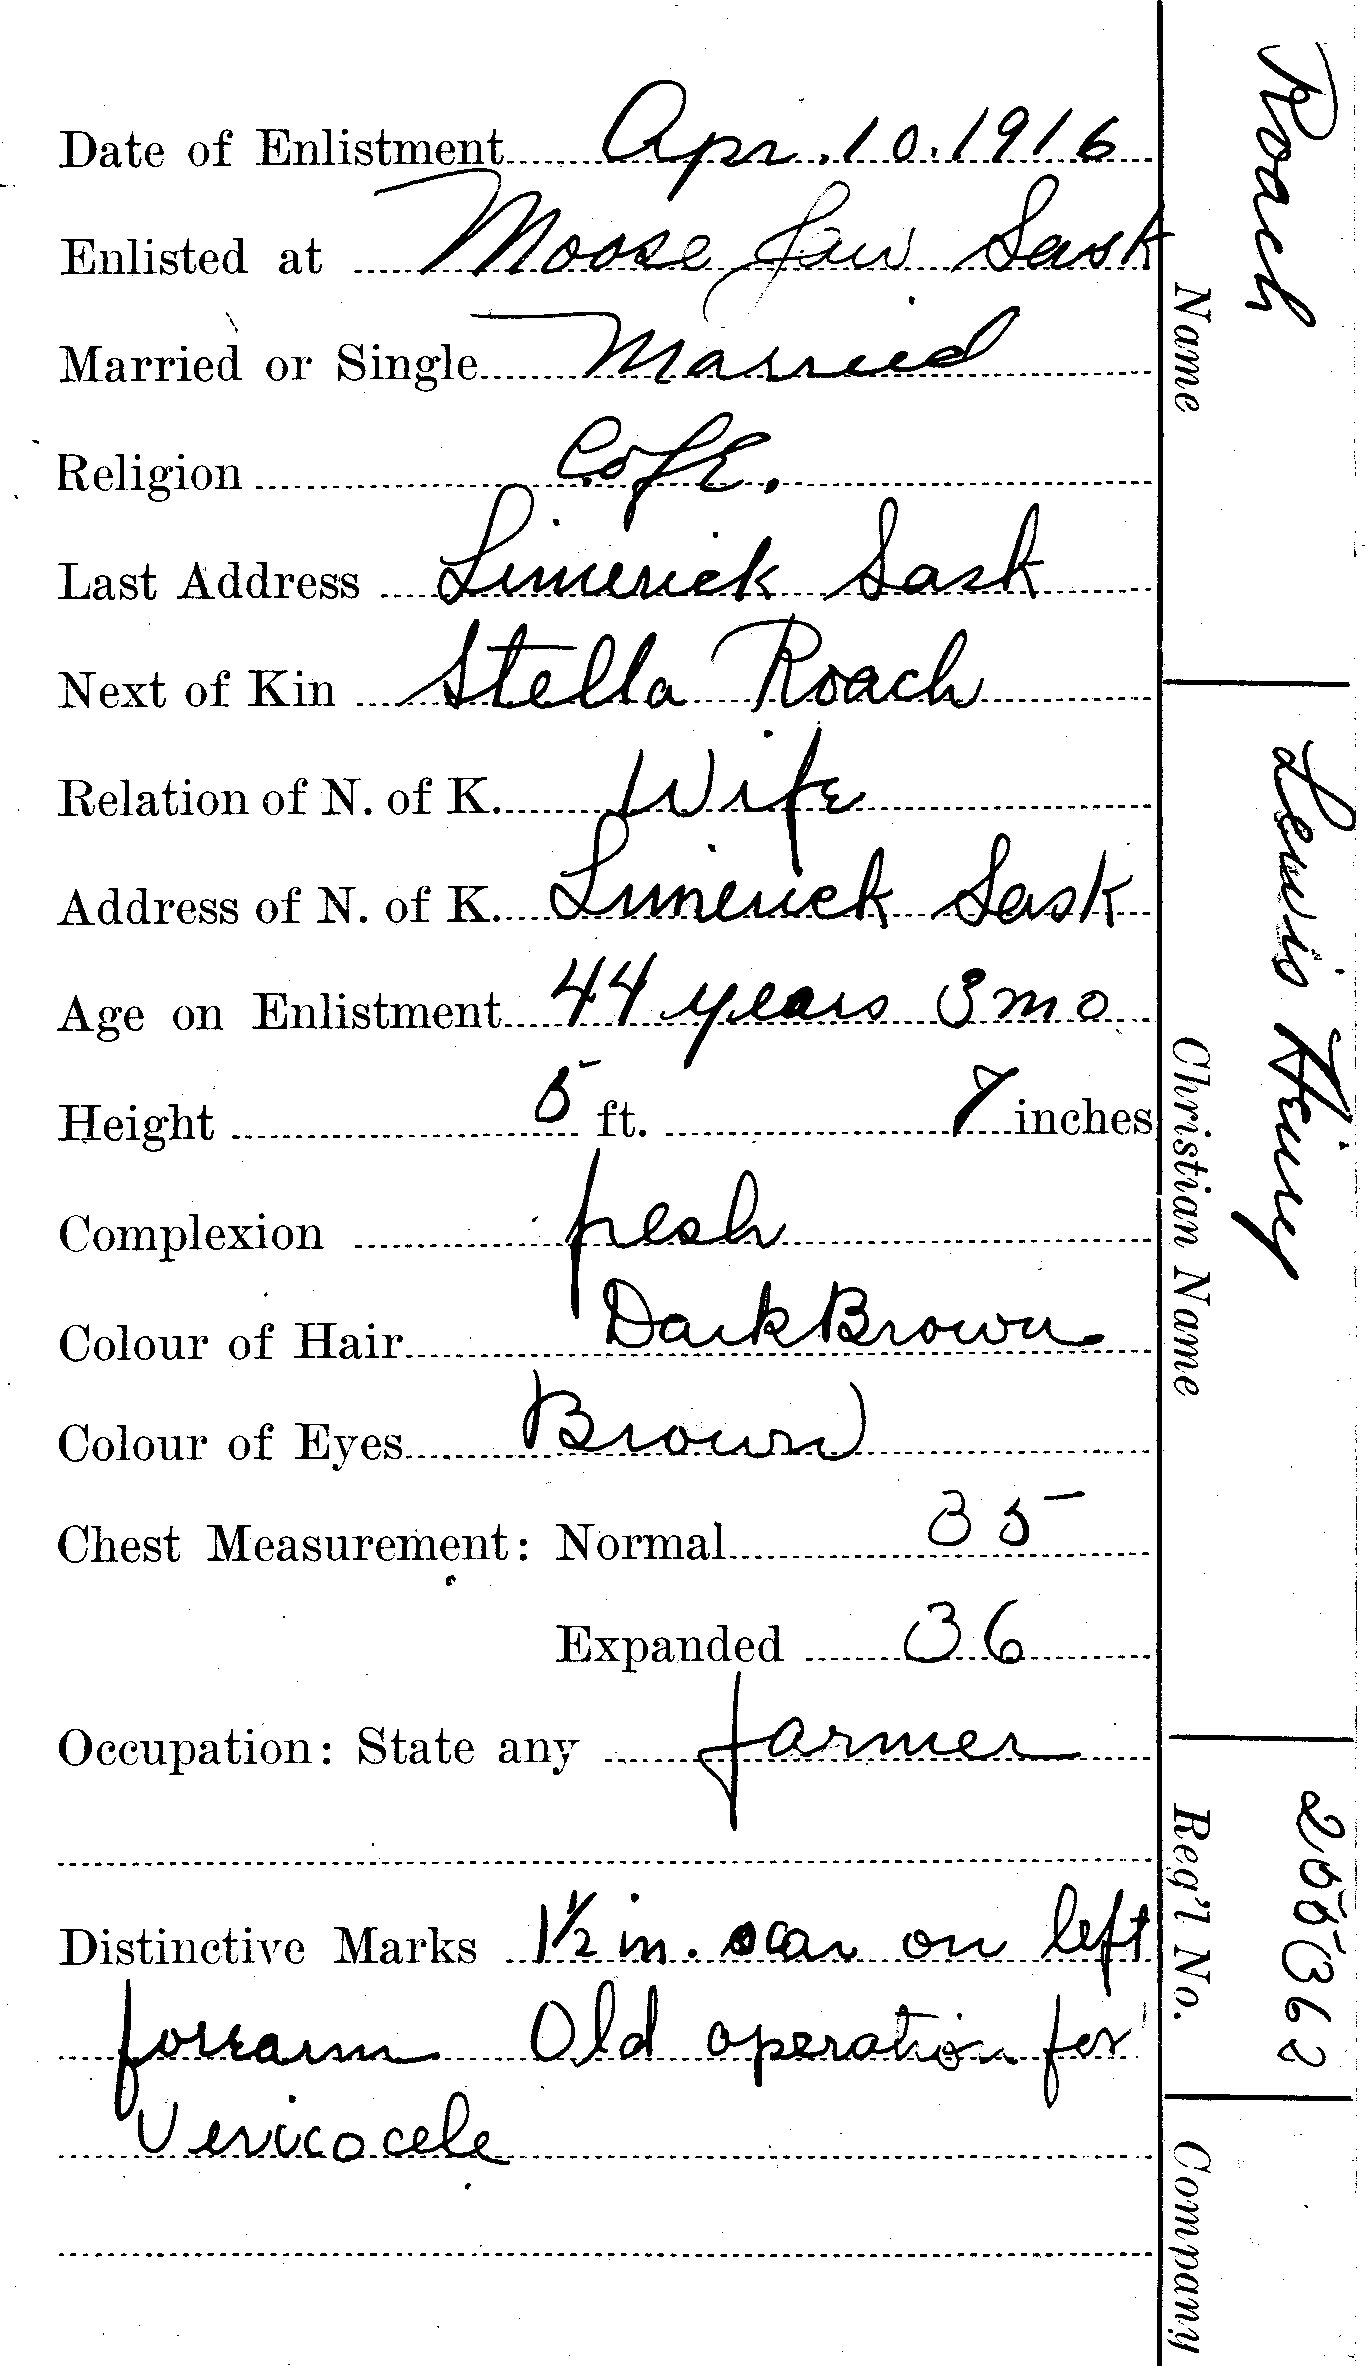 Date of Enlistment Apr. 10. 1916
Enlisted at Moose Jaw Sask
Married or Single Married
Religion C of E.
Last Address Limerick Sask
Next of Kin Stella Roach
Relation of N. of K. Wife
Address of N. of K. Limerick Sask
Age on Enlistment 44 years 3 mo
Height 5 ft. 7 inches
Complexion fresh
Colour of Hair Dark Brown
Colour of Eyes Brown
Chest Measurement: Normal 35
Expanded 36
Occupation: State any farmer
Distinctive Marks 1½ in. scar on left
forearm Old operation for
Vericocele
Roach
Name
Lewis Henry
Christian Name
255362
Reg'l No.
Company